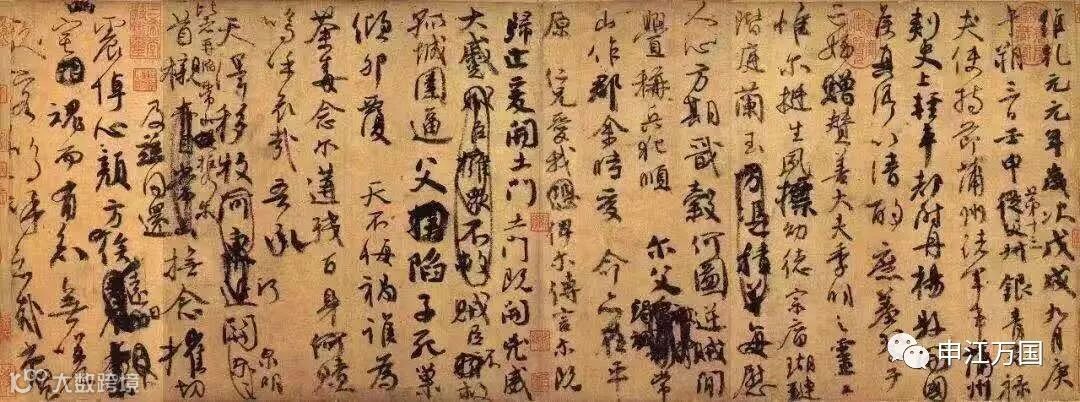 維乾元元年歲次戊戌九月庚
午朔三日壬申第十三從父銀青光祿
夫使持節蒲州諸軍事蒲州
刺史上輕車都尉丹楊縣開國
侯真卿以清酌庶羞祭于
亡姪贈贊善大夫季明之靈曰
惟爾挺生夙標幼德宗廟瑚璉
階庭蘭玉方憑積善每慰
人心方期戩穀何圖逆賊閒
釁稱兵犯順 爾父竭誠常
山作郡余時受命亦在平
原仁兄愛我俾爾傳言爾既
歸止爰開土門土門既開凶威
大蹙賊臣擁眾不救賊臣不救
孤城圍逼父陷子死巢
傾卵覆天不悔禍誰為
荼毒念爾遘殘百身何贖
嗚乎哀哉吾承
天澤移牧河東近河關泉明
比者再陷常山攜爾
首櫬撫念摧切
及茲同還
震悼心顏方俟遠日
宅魂而有知無嗟
久客嗚呼哀哉尚
申江万国
大数跨境